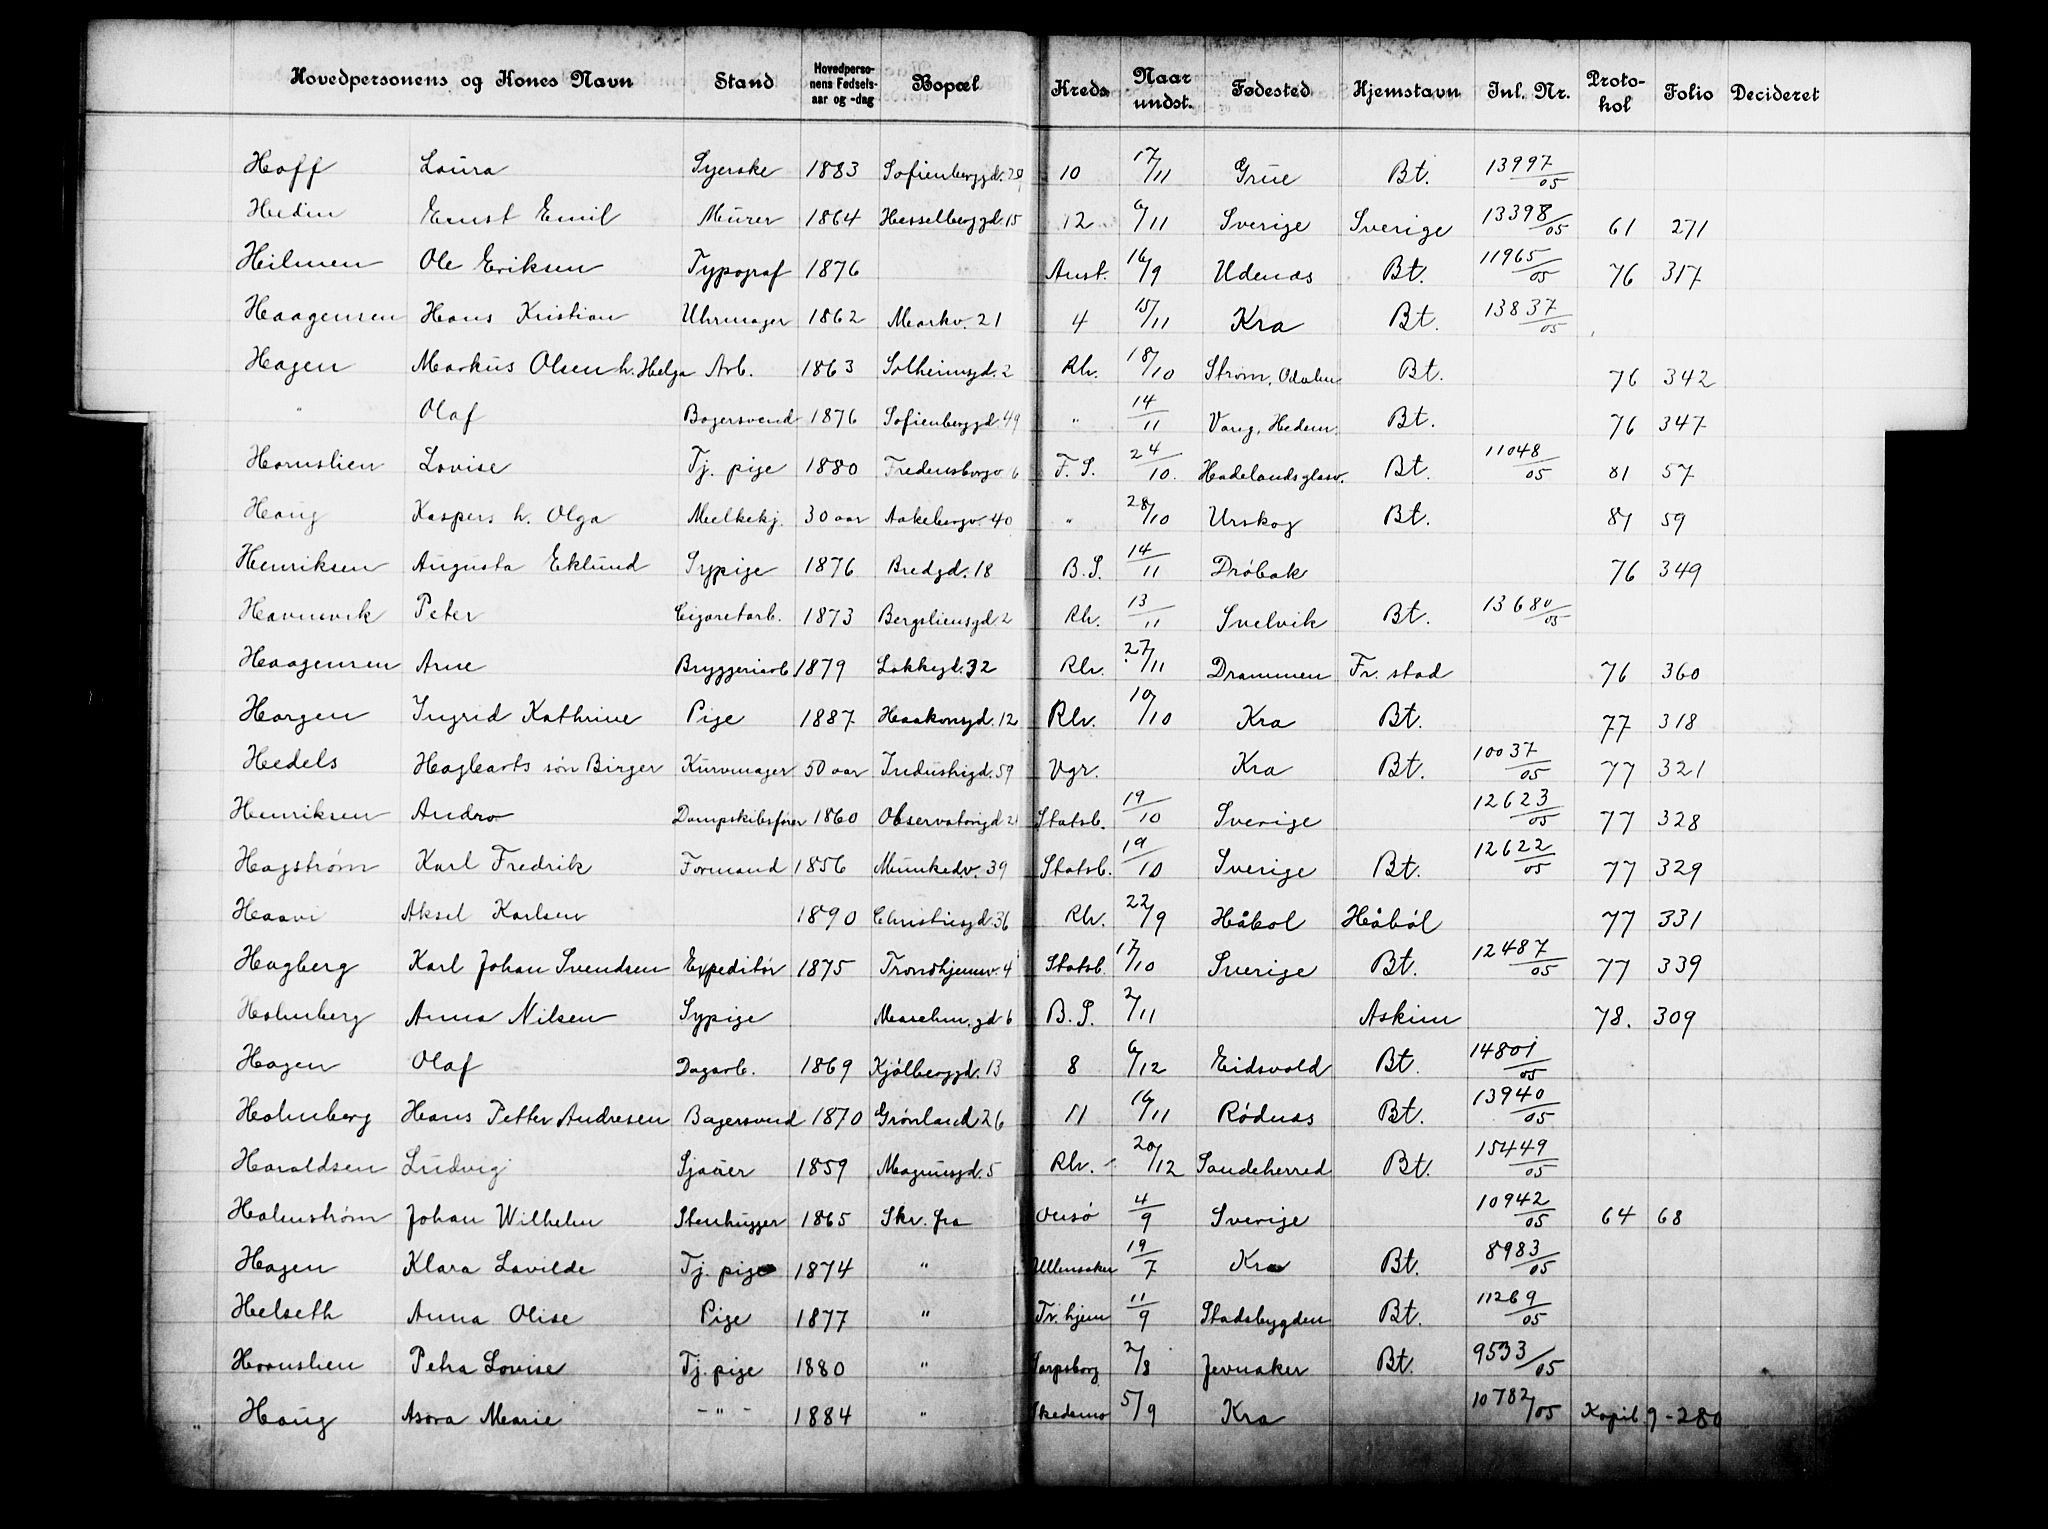 Hovedpersonens og Kones Navn Stand Hovedpersonens Fødselsaar og -dag Bopæl Kreds Naar undst. Fødested Hjemstavn Inl. Nr. Protokol Folio Decideret
Hoff Laura Syerske 1883 Sofienberggd. 29 10 17/11 Grue Bt. 13997/05
Hedin Ernst Emil Murer 1864 Hesselberggd. 15 12 6/11 Sverige Sverige 13398/05 61 271
Hilmen Ole Eriksen Typograf 1876 Anst. 16/9 Udenæs Bt. 11965/05 76 317
Haagensen Hans Kristian Uhrmager 1862 Markv. 21 4 15/11 Kra Bt. 13837/05
Hagen Markus Olsen h. Helga Arb. 1863 Solheimsgd. 2 Rh. 18/10 Strøm, Odalen Bt. 76 342
" Olaf Bagersvend 1876 Sofienberggd. 49 " 14/11 Vang, Hedem. Bt. 76 347
Hornslien Lovise Tj. pige 1880 Fredensborgv 6 F. S. 24/10. Hadelandsglasv. Bt. 11048/05 81 57
Haug Kaspers h. Olga Melkekj. 30 aar Aakebergv. 40 " 28/10 Urskog Bt. 81 59
Henriksen Augusta Eklund Sypige 1876 Bredgd. 18 B. S. 14/11 Drøbak 76 349
Havnsvik Peter Cigaretarb. 1873 Bergsliensgd. 2 Rh. 13/11 Svelvik Bt. 13680/05
Haagensen Arne Bryggeriarb. 1879 Løkkegd. 32 Rh. 27/11 Drammen Fr. stad 76 360
Horgen Ingrid Kathrine Pige 1887 Haakonsgd. 12 Rh. 10/10 Kra Bt. 77 318
Hedels Hagbarts søn Birger Kurvmager 50 aar Industrigd. 59 Vgr. Kra Bt. 10037/05 77 321
Henriksen Andro Dampskibsfører 1860 Observatorigd 21 Statsb. 19/10 Sverige 12623/05 77 328
Hagstrøm Karl Fredrik Formand 1856 Munkedv. 39 Statsb. 19/10 Sverige Bt. 12622/05 77 329
Haavi Aksel Karlsen 1890 Christiesgd. 36 Rh. 22/9 Håbøl Håbøl 77 331
Hagberg Karl Johan Svendsen Expeditør 1875 Trondhjemsv. 4 Statsb. 17/10 Sverige Bt. 12487/05 77 339
Holmberg Anna Nilsen Sypige Maschin. gd 6 B. S. 2/11 Askim 78. 309
Hagen Olaf Dagarb. 1869 Kjølberggd. 13 8 6/12 Eidsvold Bt. 14801/05
Holmberg Hans Petter Andresen Bagersvend 1870 Grønland 26 11 16/11 Rødnæs Bt. 13940/05
Haraldsen Ludvig Sjauer 1859 Magnusgd. 5 Rh. 20/12 Sandeherred Bt. 15449/05
Holmstrøm Johan Wilhelm Stenhugger 1865 Skr. fra Onsø 4/9 Sverige 10942/05 64 68
Hagen Klara Lavilde Tj. pige 1874 " Ullensaker 19/7 Kra Bt. 8983/05
Helseth Anna Olise Pige 1877 " Tr. hjem 11/9 Stadsbygden Bt. 11269/05
Hornslien Petra Lovise Tj. pige 1880 " Sarpsborg 2/8 Jevnaker Bt. 9533/05
Haug Asora Marie - " - 1884 " Skedsmo 5/9 Kra 10782/05 Kopib 9 - 280